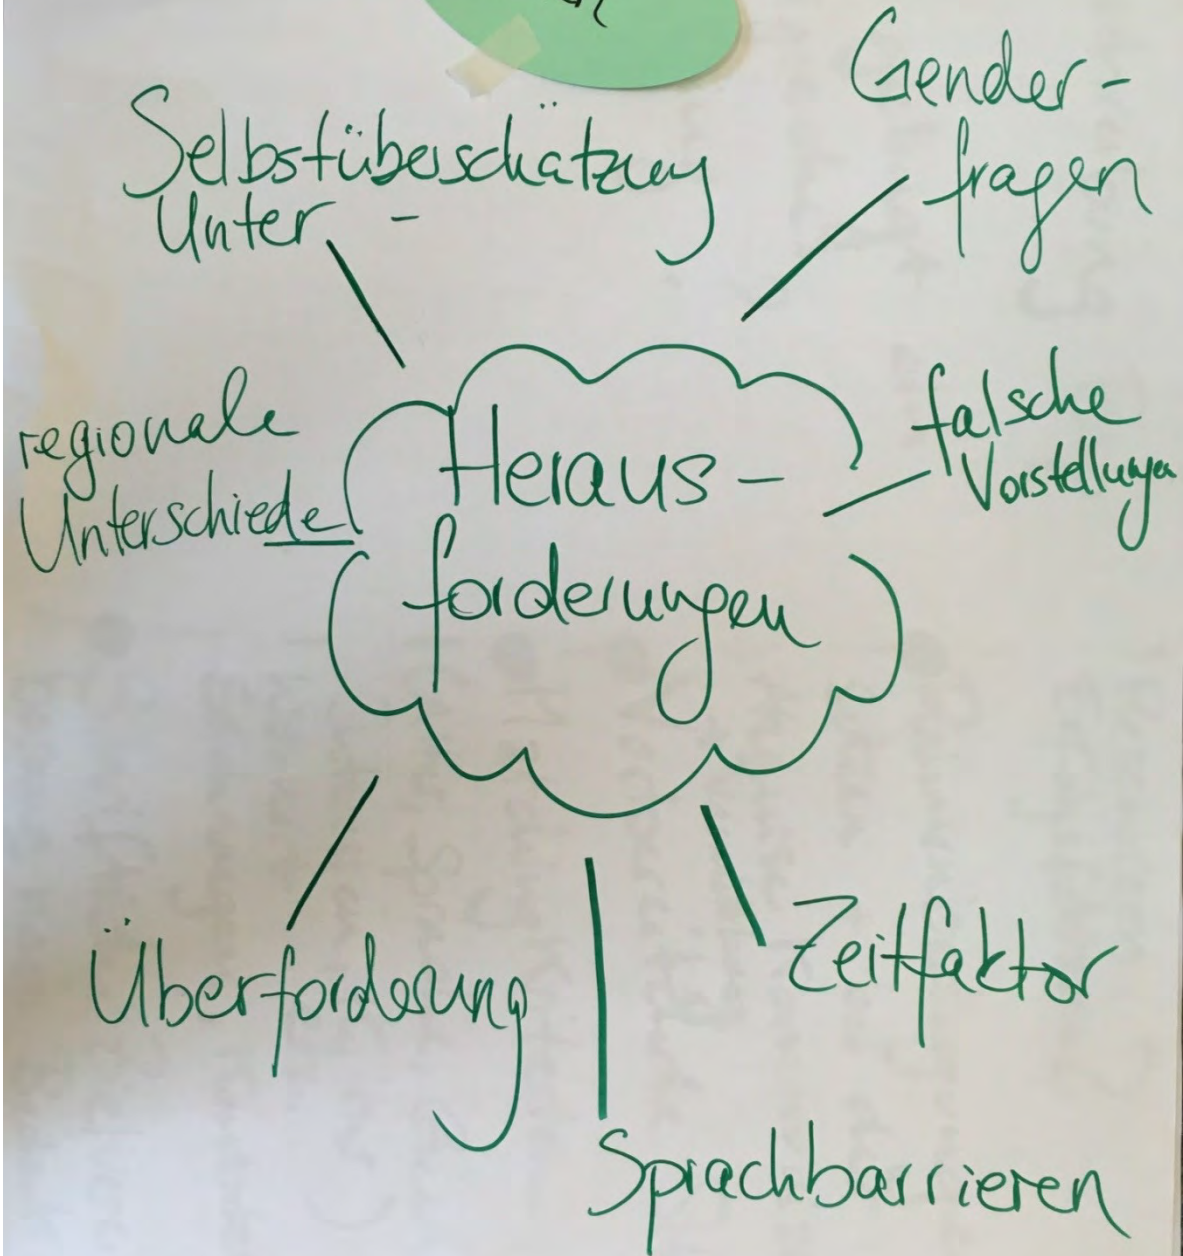 Selbstüberschätzung
Unter -
Gender-
fragen
regionale
Unterschiede
Heraus-
forderungen
falsche
Vorstellungen
Überforderung
Zeitfaktor
Sprachbarrieren